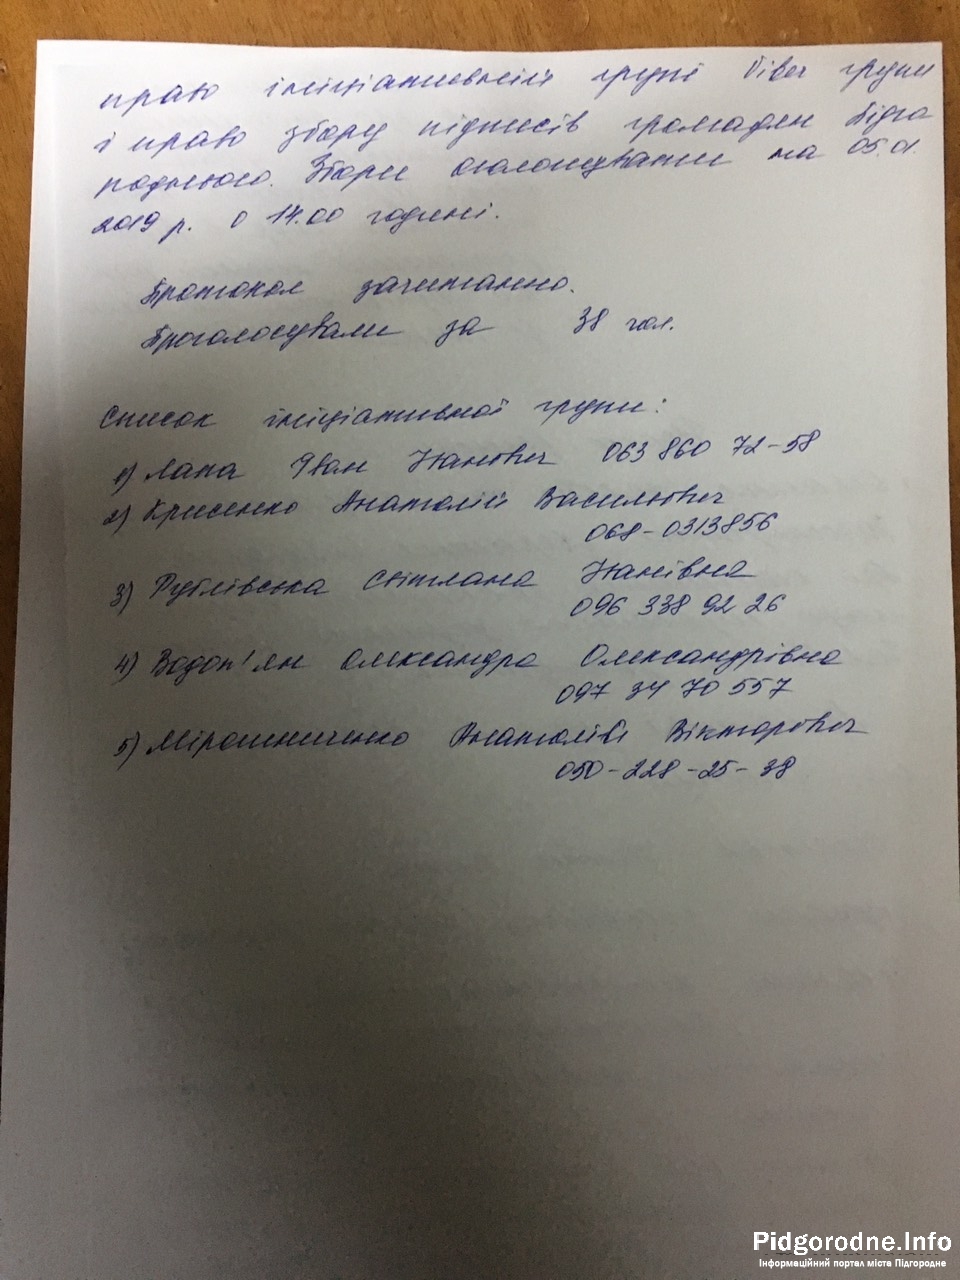 право ініціативній групі Viber групи
і право збору підписів громадян Підго
родного. Збори оголошувати на 05.01.
2019 р. о 14.00 годині.
Протокол зачитанно.
Проголосували за 38 чол.
Список ініціативної групи:
1) Лапа Іван Іванович 063 860 72-58
2) Крисенко Анатолій Васильович
068-0313856
3) Рублівська Світлана Іванівна
096 338 92 26
4) Водоп'ян Олександра Олександрівна
097 34 70 557
5) Мірошниченко Анатолій Вікторович
050-228-25-38
Pidgorodne.Info
Інформаційний портал міста Підгородне